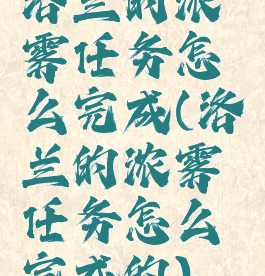 洛兰的浓
雾任务怎
么完成(洛
兰的浓雾
任务怎么
完成的)